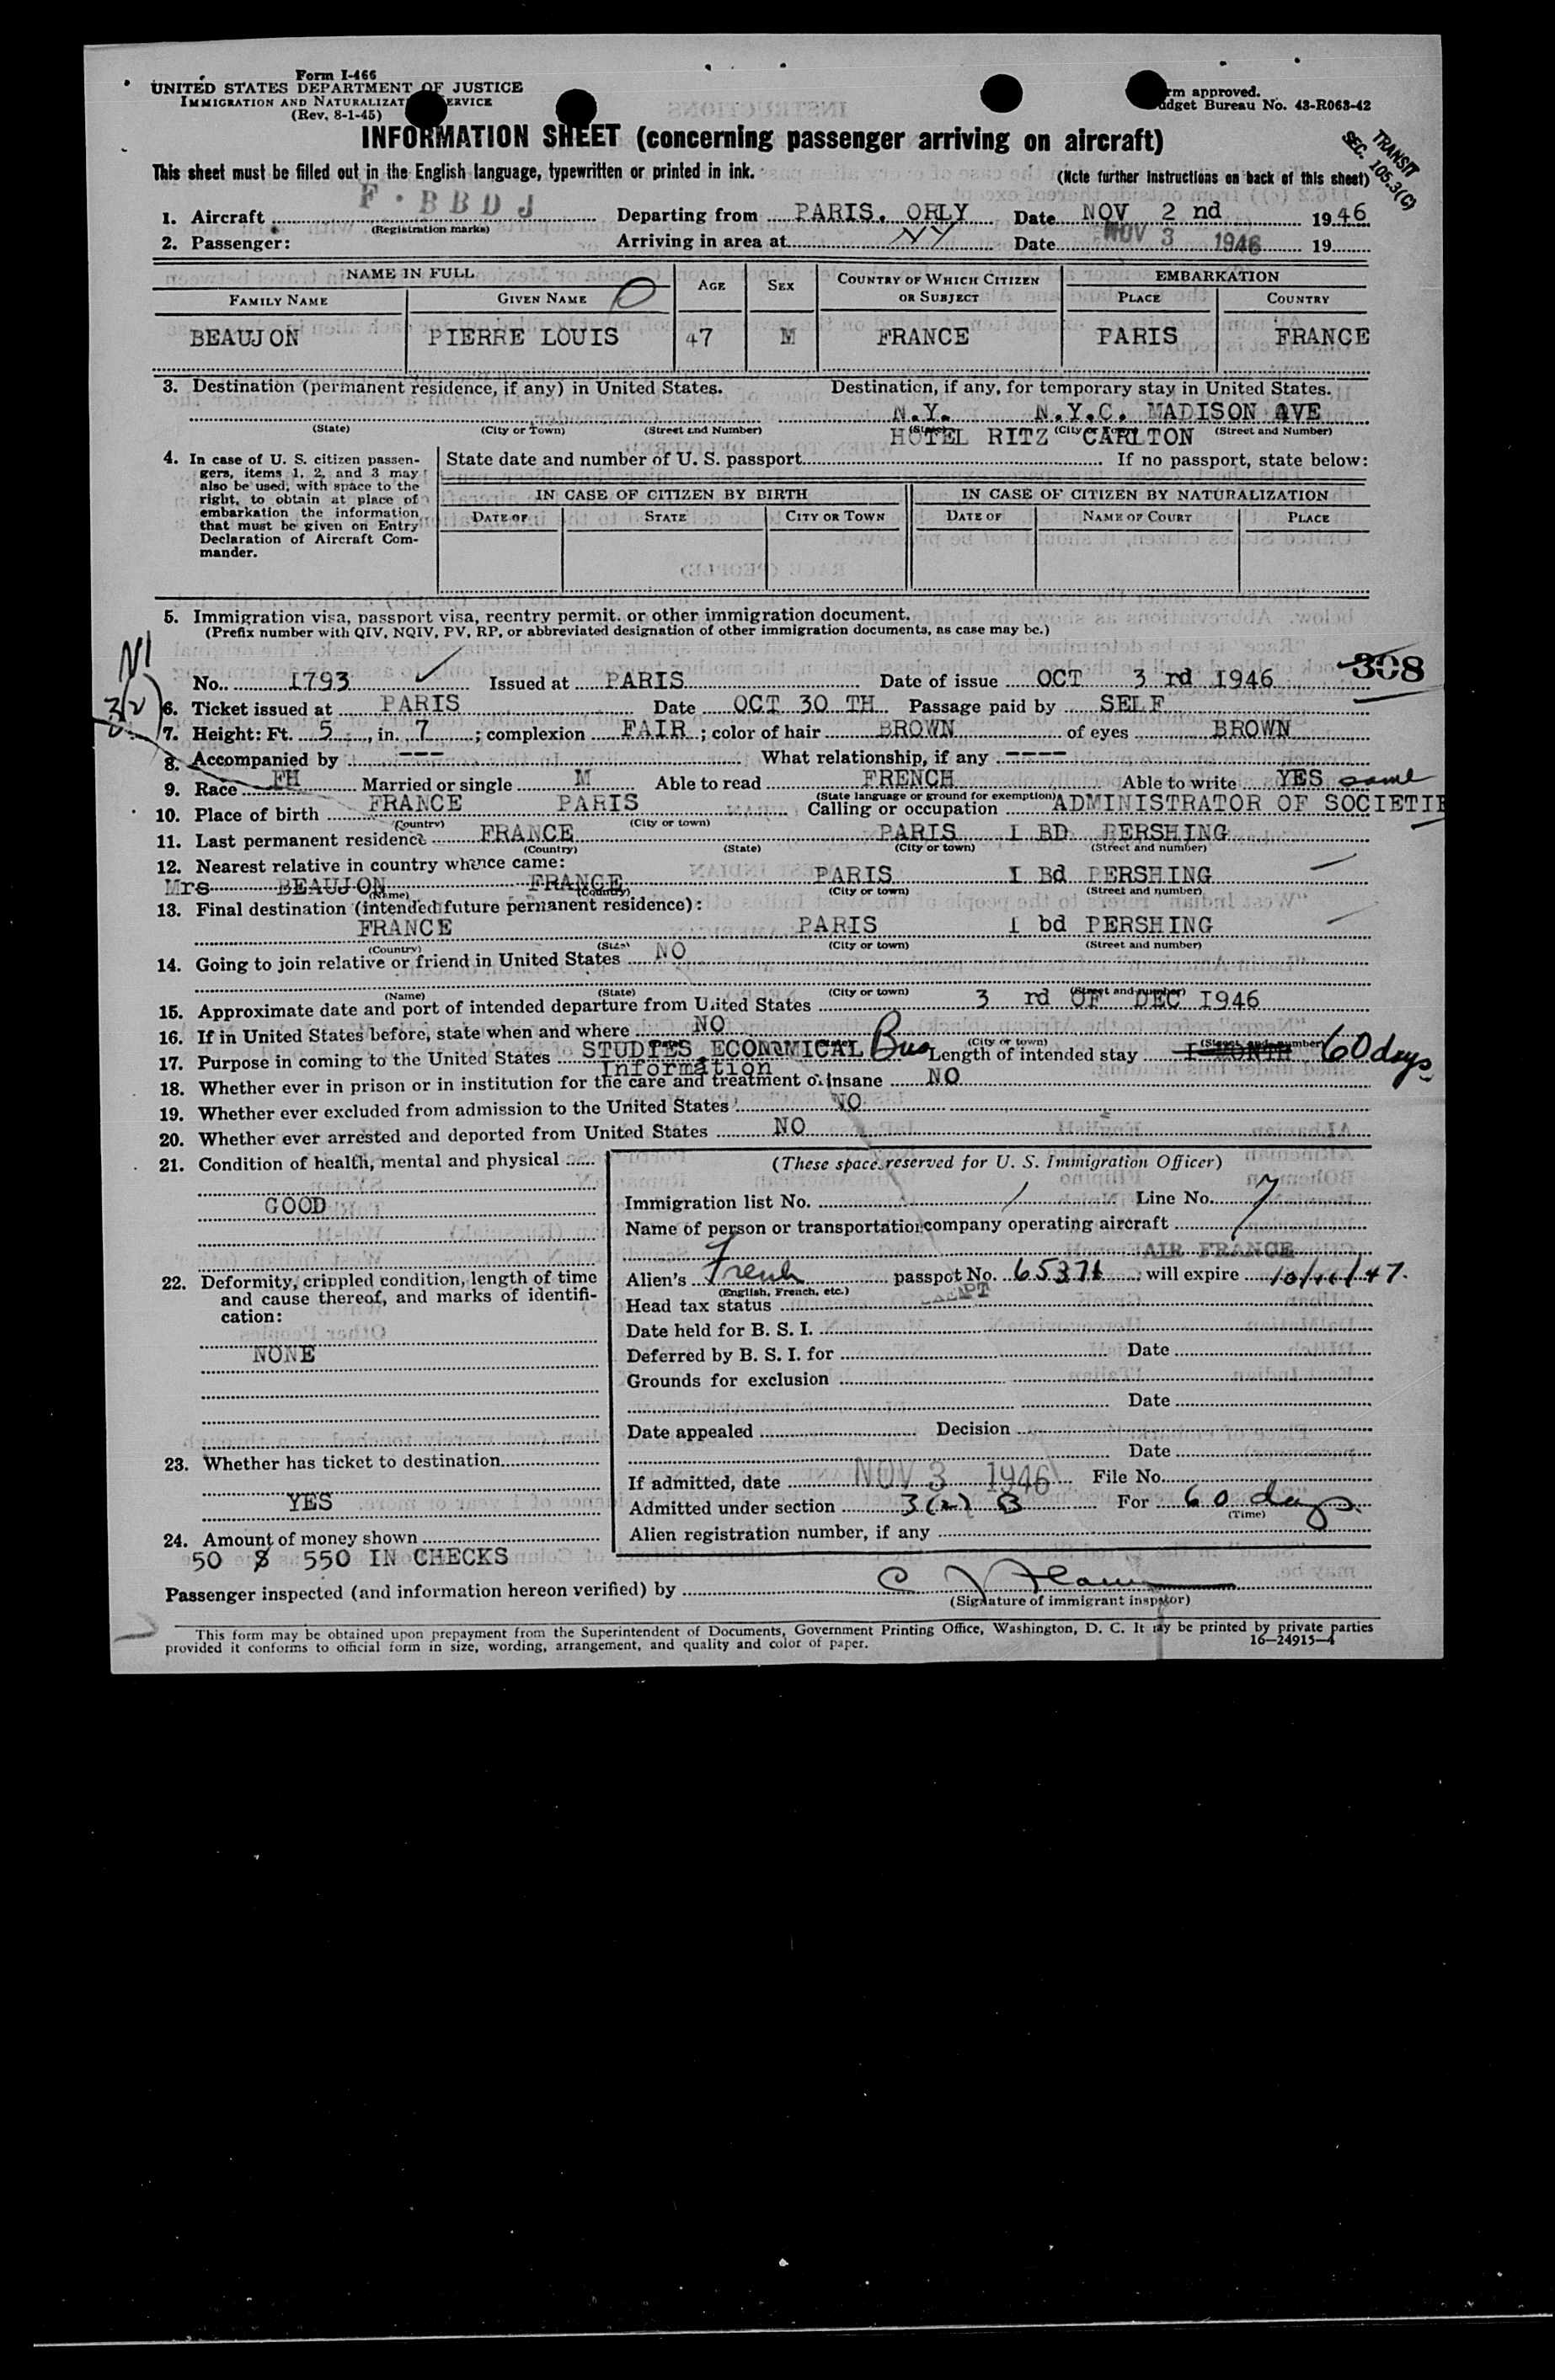 Form I-466
UNITED STATES DEPARTMENT OF JUSTICE
IMMIGRATION AND NATURALIZAT ERVICE
(Rev. 8-1-45)
rm approved.
udget Bureau No. 43-R063-42
INFORMATION SHEET (concerning passenger arriving on aircraft)
TRANSIT
SEC. 105.3(C)
This sheet must be filled out in the English language, typewritten or printed in ink.
(Note further instructions on back of this sheet)
1. Aircraft F·BBDJ Departing from PARIS. ORLY Date NOV 2 nd 1946
(Registration marks)
2. Passenger: Arriving in area at NY Date NOV 3 1946 19
NAME IN FULL AGE SEX COUNTRY OF WHICH CITIZEN OR SUBJECT EMBARKATION
FAMILY NAME GIVEN NAME PLACE COUNTRY
BEAUJON PIERRE LOUIS 47 M FRANCE PARIS FRANCE
3. Destination (permanent residence, if any) in United States. Destination, if any, for temporary stay in United States.
N.Y. N.Y.C. MADISON AVE
(State) (City or Town) (Street and Number) (State) (City or Town) (Street and Number)
HOTEL RITZ CARLTON
4. In case of U. S. citizen passen-
gers, items 1, 2, and 3 may
also be used, with space to the
right, to obtain at place of
embarkation the information
that must be given on Entry
Declaration of Aircraft Com-
mander.
State date and number of U. S. passport If no passport, state below:
IN CASE OF CITIZEN BY BIRTH IN CASE OF CITIZEN BY NATURALIZATION
DATE OF STATE CITY OR TOWN DATE OF NAME OF COURT PLACE
5. Immigration visa, passport visa, reentry permit, or other immigration document.
(Prefix number with QIV, NQIV, PV, RP, or abbreviated designation of other immigration documents, as case may be.)
NI
3(2)
308
No. I793 Issued at PARIS Date of issue OCT 3 rd I946
6. Ticket issued at PARIS Date OCT 30 TH Passage paid by SELF
7. Height: Ft. 5, in. 7; complexion FAIR; color of hair BROWN of eyes BROWN
8. Accompanied by --- What relationship, if any ----
9. Race FH Married or single M Able to read FRENCH Able to write YES same
(State language or ground for exemption)
10. Place of birth FRANCE PARIS Calling or occupation ADMINISTRATOR OF SOCIETIE
(Country) (City or town)
11. Last permanent residence FRANCE PARIS I BD PERSHING
(Country) (State) (City or town) (Street and number)
12. Nearest relative in country whence came:
Mrs BEAUJON FRANCE PARIS I Bd PERSHING
(Name) (Country) (City or town) (Street and number)
13. Final destination (intended future permanent residence):
FRANCE PARIS I bd PERSHING
(Country) (State) (City or town) (Street and number)
14. Going to join relative or friend in United States NO
(Name) (State) (City or town) (Street and number)
15. Approximate date and port of intended departure from United States 3 rd OF DEC I946
16. If in United States before, state when and where NO
(City or town) (Street and number)
17. Purpose in coming to the United States STUDIES ECONOMICAL Bus Length of intended stay I MONTH 60 days
Information
18. Whether ever in prison or in institution for the care and treatment of insane NO
19. Whether ever excluded from admission to the United States NO
20. Whether ever arrested and deported from United States NO
21. Condition of health, mental and physical
GOOD
22. Deformity, crippled condition, length of time
and cause thereof, and marks of identifi-
cation:
NONE
23. Whether has ticket to destination
YES
24. Amount of money shown
50 $ 550 IN CHECKS
(These spaces reserved for U. S. Immigration Officer)
Immigration list No. 1 Line No. 7
Name of person or transportation company operating aircraft
AIR FRANCE
Alien's French passport No. 65371 will expire
(English, French, etc.)
Head tax status EXEMPT
Date held for B. S. I.
Deferred by B. S. I. for Date
Grounds for exclusion
Date
Date appealed Decision
Date
If admitted, date NOV 3 1946 File No.
Admitted under section 3(2) B For 60 days
(Time)
Alien registration number, if any
Passenger inspected (and information hereon verified) by
(Signature of immigrant inspector)
This form may be obtained upon prepayment from the Superintendent of Documents, Government Printing Office, Washington, D. C. It may be printed by private parties
provided it conforms to official form in size, wording, arrangement, and quality and color of paper.
16—24915-1